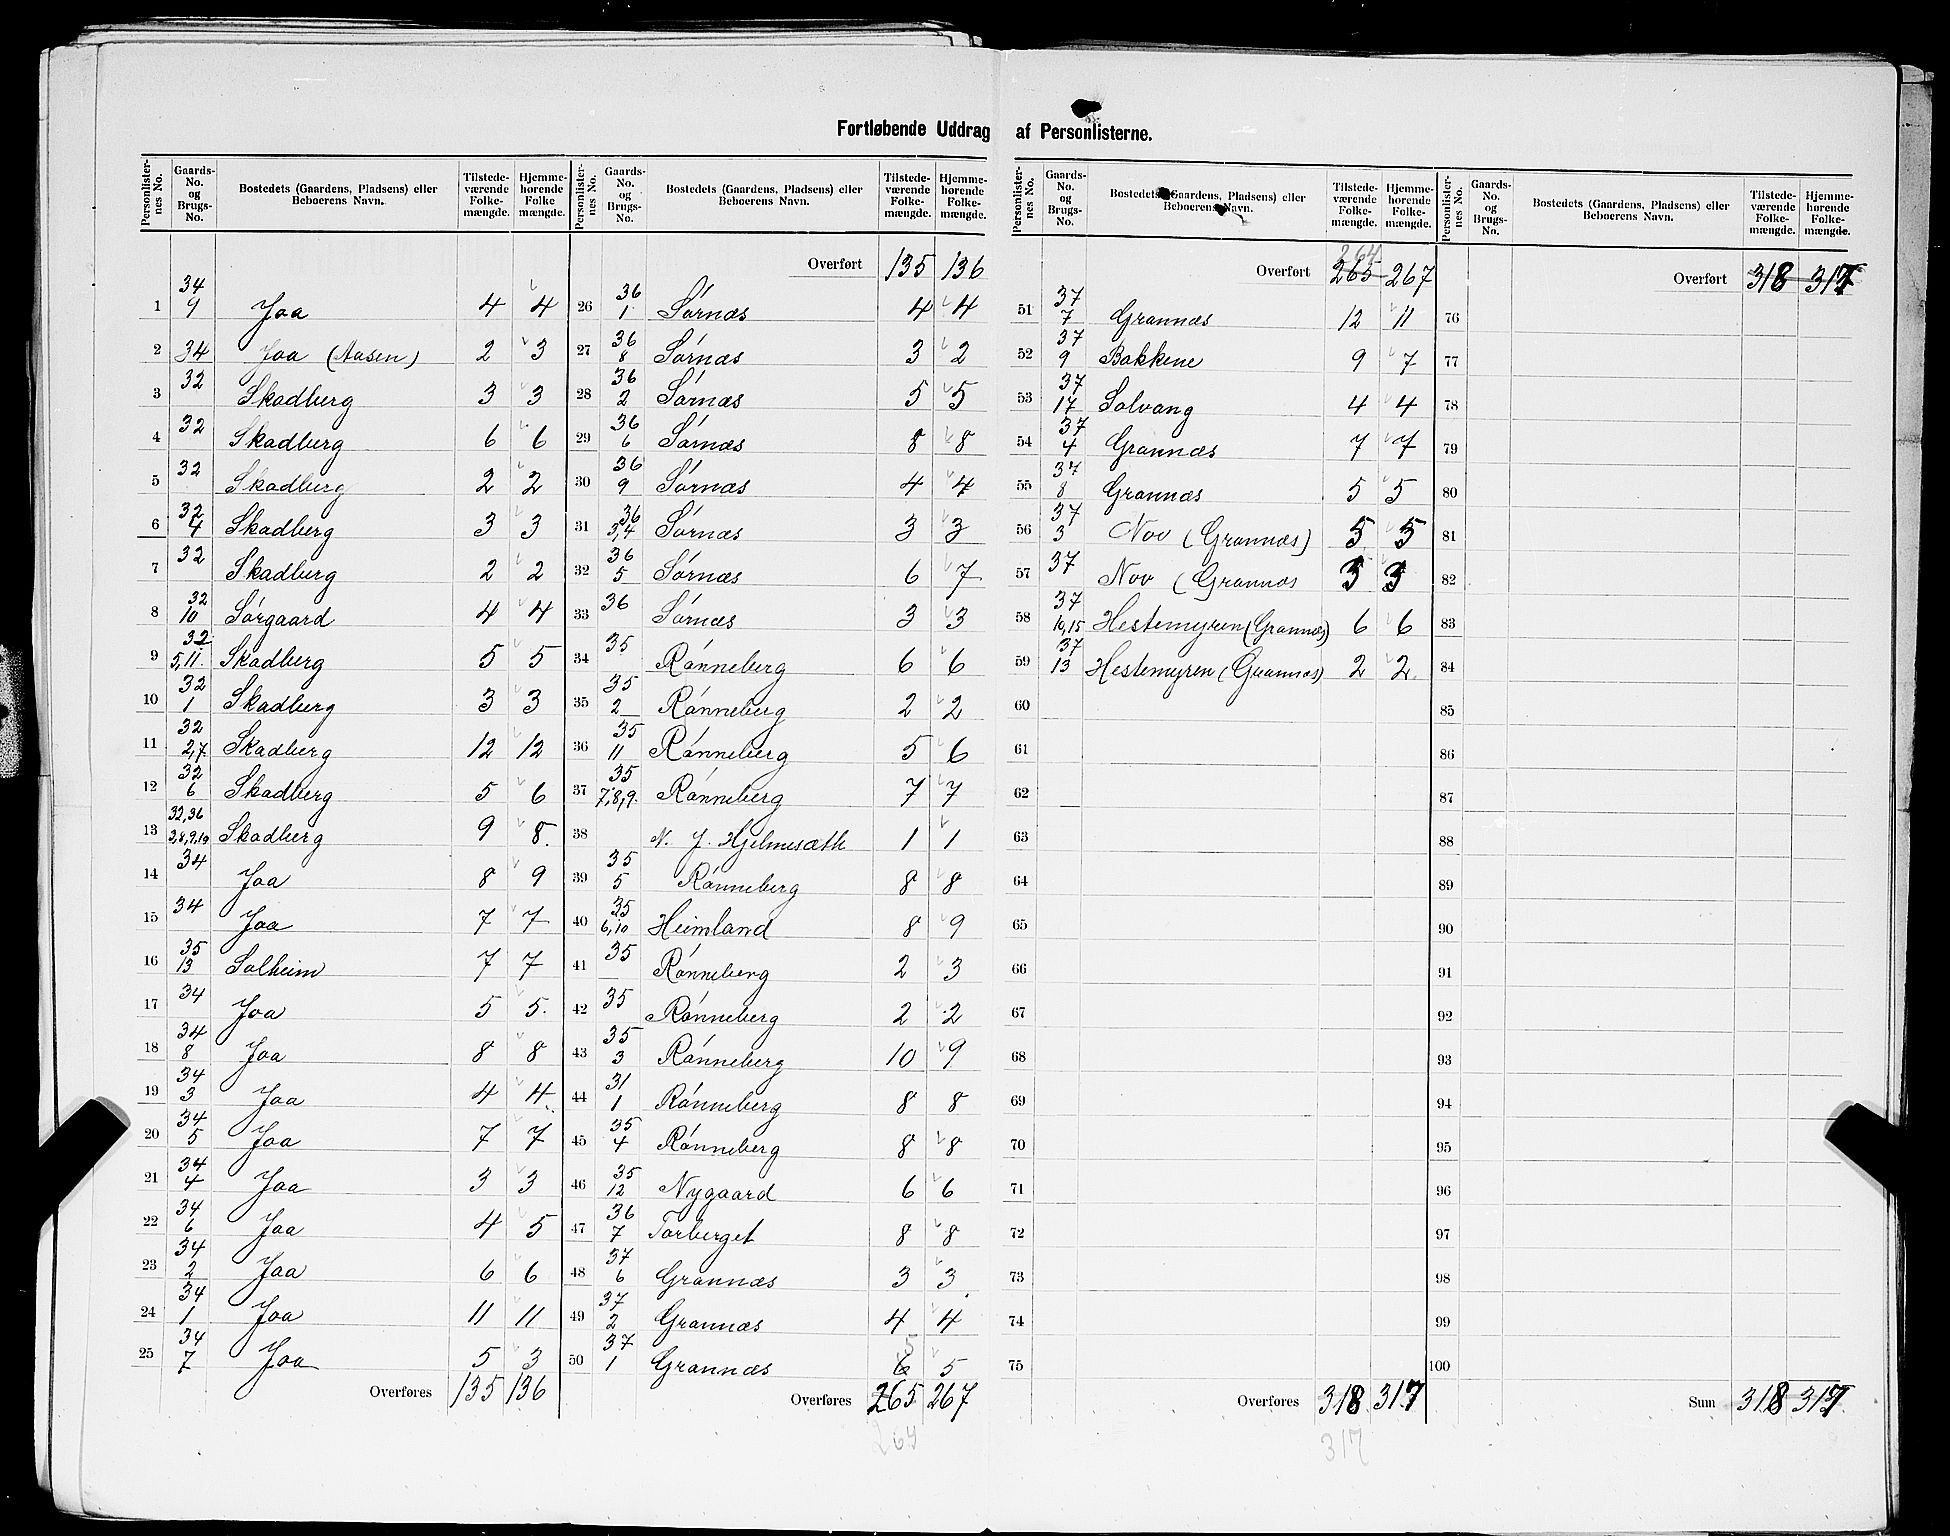 Fortløbende Uddrag af Personlisterne.
Personlister-nes No. | Gaards-No. og Brugs-No. | Bostedets (Gaardens, Pladsens) eller Beboerens Navn. | Tilstede-værende Folke-mængde. | Hjemme-hørende Folke mængde.
1 34 9 Joa 4 4
2 34 Joa (Aasen) 2 3
3 32 Skadberg 3 3
4 32 Skadberg 6 6
5 32 Skadberg 2 2
6 32 4 Skadberg 3 3
7 32 Skadberg 2 2
8 32 10 Sørgaard 4 4
9 32 5,11. Skadberg 5 5
10 32 1 Skadberg 3 3
11 32 2,7 Skadberg 12 12
12 32 6 Skadberg 5 6
13 32,36 3,8,9,10 Skadberg 9 8.
14 34 Joa 8 9
15 34 Joa 7 7
16 35 13 Solheim 7 7
17 34 Joa 5 5.
18 34 8 Joa 8 8
19 34 3 Joa 4 4.
20 34 5 Joa 7 7
21 34 4 Joa 3 3
22 34 6 Joa 4 5
23 34 2 Joa 6 6
24 34 1 Joa 11 11
25 34 7 Joa 5 3
Overføres 135 136
Personlister-nes No. | Gaards-No. og Brugs-No. | Bostedets (Gaardens, Pladsens) eller Beboerens Navn. | Tilstede-værende Folke-mængde. | Hjemme-hørende Folke-mængde.
Overført 135 136
26 36 1 Sørnæs 4 4
27 36 8 Sørnæs 3 2
28 36 2 Sørnæs 5 5
29 36 6 Sørnæs 8 8
30 36 9 Sørnæs 4 4
31 36 3,4 Sørnæs 3 3
32 36 5 Sørnæs 6 7
33 36 Sørnæs 3 3
34 35 Rønneberg 6 6
35 35 2 Rønneberg 2 2
36 35 11 Rønneberg 5 6
37 35 7,8,9. Rønneberg 7 7
38 N. J. Hjelmesæth 1 1
39 35 5 Rønneberg 8 8
40 35 6,10 Heimland 8 9
41 35 Rønneberg 2 3
42 35 Rønneberg 2 2
43 35 3 Rønneberg 10 9
44 31 1 Rønneberg 8 8
45 35 4 Rønneberg 8 8
46 35 12 Nygaard 6 6
47 36 7 Torberget 8 8
48 37 6 Grannæs 3 3
49 37 2 Grannæs 4 4
50 37 1 Grannæs 6 5 5
Overføres 265 267
264
Personlister-nes No. | Gaards-No. og Brugs-No. | Bostedets (Gaardens, Pladsens) eller Beboerens Navn. | Tilstede-værende Folke-mængde. | Hjemme-hørende Folke-mængde.
264
Overført 265 267
51 37 7 Grannæs 12 11
52 37 9 Bakkene 9 7
53 37 17 Solvang 4 4
54 37 4 Grannæs 7 7
55 37 8 Grannæs 5 5
56 37 3 Nov (Grannæs) 5 5
57 37 Nov (Grannæs 3 3
58 37 10,15 Hestemyren (Grannæs) 6 6
59 37 13 Hestemyren (Grannæs) 2 2.
60
61
62
63
64
65
66
67
68
69
70
71
72
73
74
75
Overføres 318 317
317
Personlister-nes No. | Gaards-No. og Brugs-No. | Bostedets (Gaardens, Pladsens) eller Beboerens Navn. | Tilstede-værende Folke-mængde. | Hjemme-hørende Folke-mængde.
Overført 318 317
76
77
78
79
80
81
82
83
84
85
86
87
88
89
90
91
92
93
94
95
96
97
98
99
100
Sum 318 317